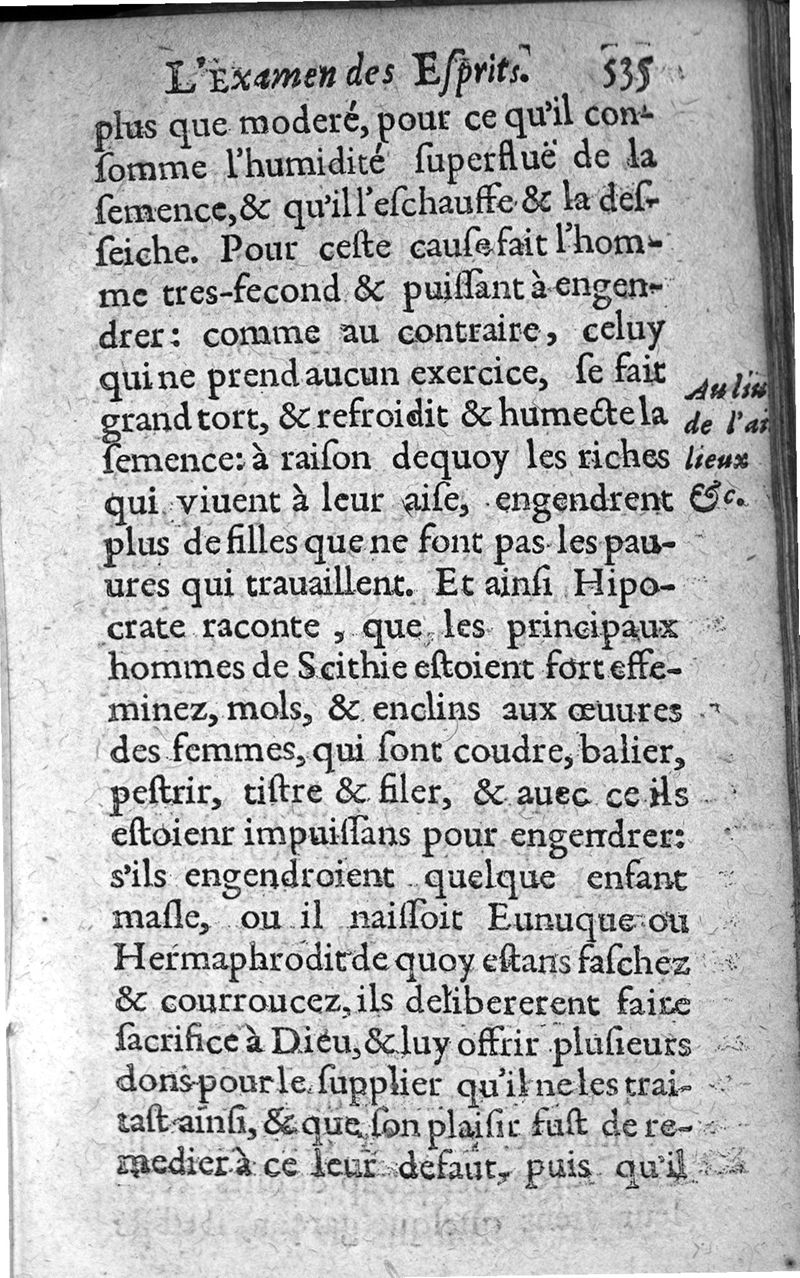 L'Examen des Eſprits. 535
plus que moderé, pour ce qu'il con-
ſomme l'humidité ſuperfluë de la
ſemence, & qu'il l'eſchauffe & la deſ-
ſeiche. Pour ceſte cauſe fait l'hom-
me tres-fecond & puiſſant à engen-
drer: comme au contraire, celuy
qui ne prend aucun exercice, ſe fait
grand tort, & refroidit & humecte la
ſemence: à raiſon dequoy les riches
qui viuent à leur aiſe, engendrent
plus de filles que ne font pas les pau-
ures qui trauaillent. Et ainſi Hipo-
crate raconte, que les principaux
hommes de Scithie eſtoient fort effe-
minez, mols, & enclins aux œuures
des femmes, qui ſont coudre, balier,
peſtrir, tiſtre & filer, & auec ce ils
eſtoienr impuiſſans pour engendrer:
s'ils engendroient quelque enfant
maſle, ou il naiſſoit Eunuque ou
Hermaphrodit de quoy eſtans faſchez
& courroucez, ils delibererent faire
ſacrifice à Dieu, & luy offrir pluſieurs
dons pour le ſupplier qu'il ne les trai-
taſt ainſi, & que ſon plaiſir fuſt de re-
medier à ce leur defaut, puis qu'il
Auliu
de l'ai
lieux
&c.